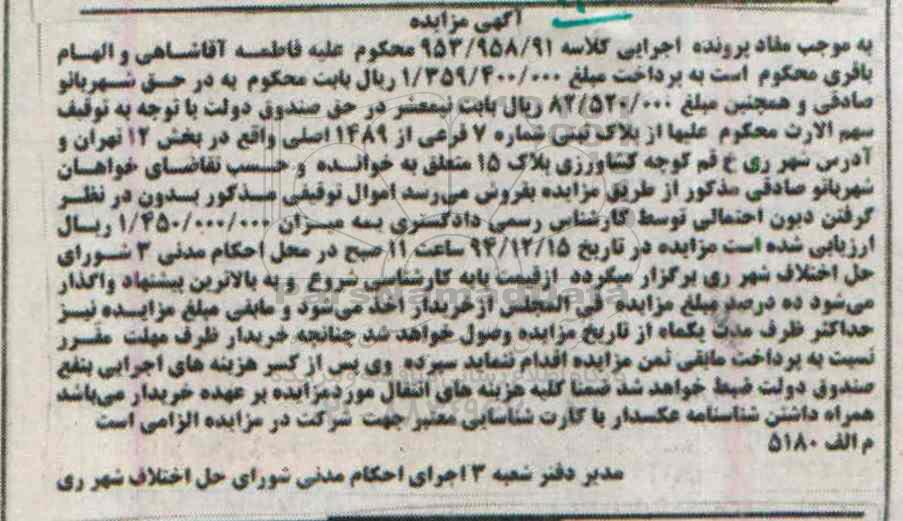 آگهی مزایده
به موجب مفاد پرونده اجرایی کلاسه ۹۵۳/۹۵۸/۹۱ محکوم علیه فاطمه آقاشاهی و الهام
باقری محکوم است به پرداخت مبلغ ۱/۳۵۹/۴۰۰/۰۰۰ ریال بابت محکوم به در حق شهربانو
صادقی و همچنین مبلغ ۸۲/۵۲۰/۰۰۰ ریال بابت نیمعشر در حق صندوق دولت با توجه به توقیف
سهم الارث محکوم علیها از پلاک ثبتی شماره ۷ فرعی از ۱۴۸۹ اصلی واقع در بخش ۱۲ تهران و
آدرس شهر ری خ قم کوچه کشاورزی پلاک ۱۵ متعلق به خوانده و حسب تقاضای خواهان
شهربانو صادقی مذکور از طریق مزایده بفروش می‌رسد اموال توقیفی مذکور بدون در نظر
گرفتن دیون احتمالی توسط کارشناس رسمی دادگستری به میزان ۱/۴۵۰/۰۰۰/۰۰۰ ریال
ارزیابی شده است مزایده در تاریخ ۹۴/۱۲/۱۵ ساعت ۱۱ صبح در محل احکام مدنی ۳ شورای
حل اختلاف شهر ری برگزار میگردد ازقیمت پایه کارشناسی شروع و به بالاترین پیشنهاد واگذار
می‌شود ده درصد مبلغ مزایده فی المجلس ازخریدار اخذ می‌شود و مابقی مبلغ مزایده نیز
حداکثر ظرف مدت یکماه از تاریخ مزایده وصول خواهد شد چنانچه خریدار ظرف مهلت مقرر
نسبت به پرداخت مابقی ثمن مزایده اقدام ننماید سپرده وی پس از کسر هزینه های اجرایی بنفع
صندوق دولت ضبط خواهد شد ضمنا کلیه هزینه های انتقال موردمزایده بر عهده خریدار می‌باشد
همراه داشتن شناسنامه عکسدار یا کارت شناسایی معتبر جهت شرکت در مزایده الزامی است
م الف ۵۱۸۰
مدیر دفتر شعبه ۳ اجرای احکام مدنی شورای حل اختلاف شهر ری